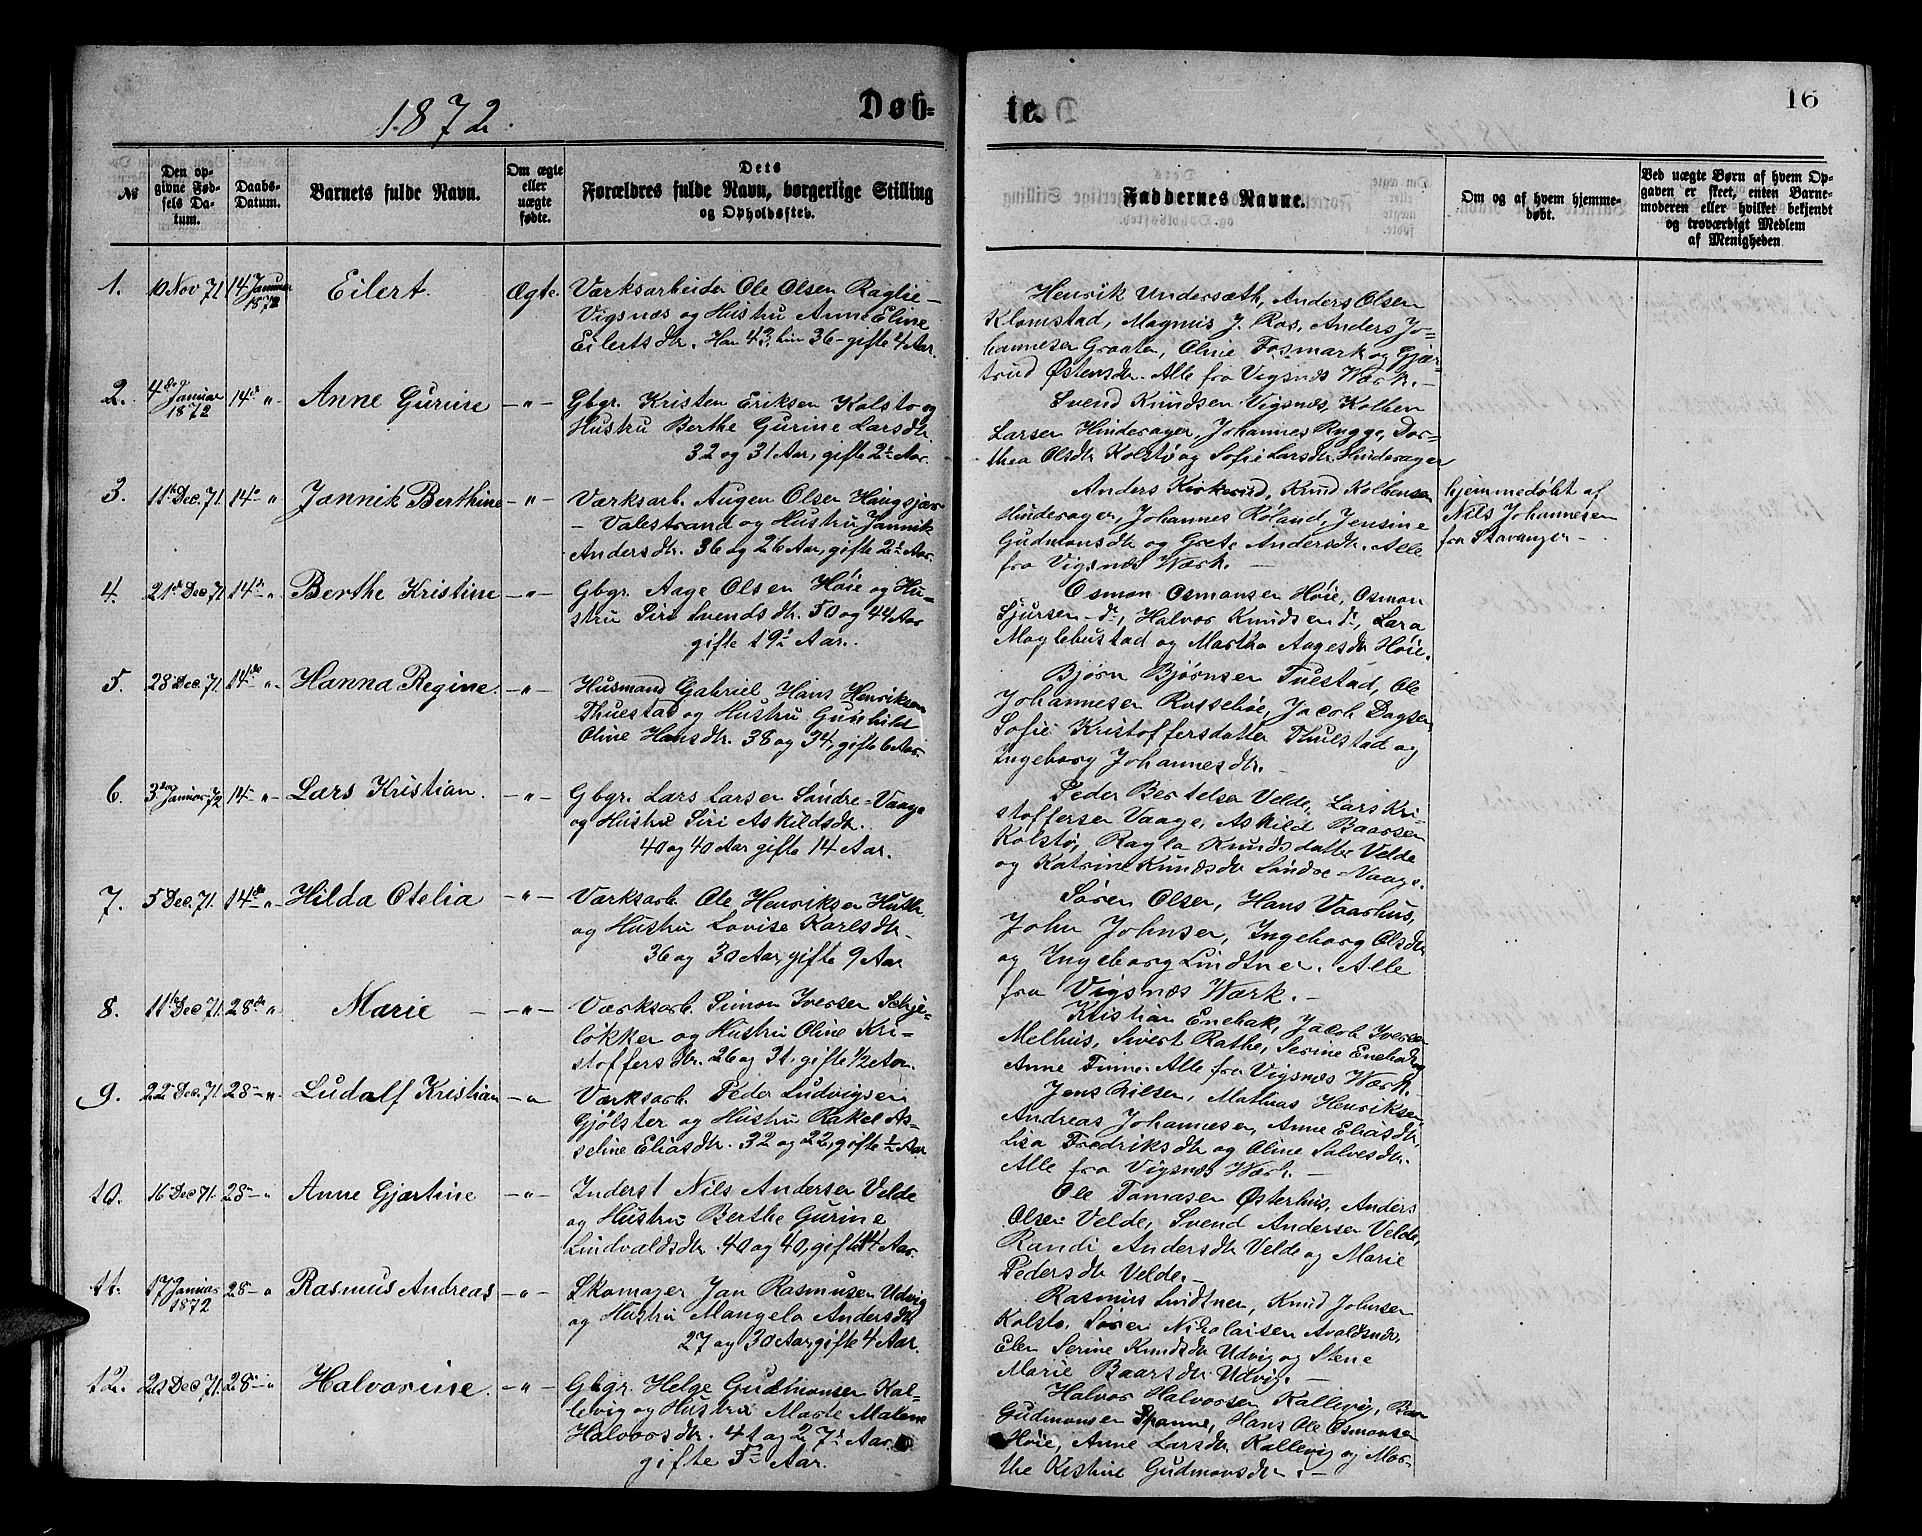 1872.
Døb-
te.
16
№
Den op-
givne Fød-
sels Da-
tum.
Daabs-
Datum.
Barnets fulde Navn.
Om ægte
eller
uægte
fødte.
Dets
Forældres fulde Navn, borgerlige Stilling
og Opholdssted.
Faddernes Navne.
Om og af hvem hjemme-
døbt.
Ved uægte Børn af hvem Op-
gaven er skeet, enten Barne-
moderen eller hvilket bekjendt
og troværdigt Medlem
af Menigheden
1. 10 Nov 71 14 Januar 1872 Eilert. Ægte.
Værksarbeider Ole Olsen Raglie-
Vigsnæs og Hustru Anne Eline
Eilertsdtr. Han 43, hun 36 - gifte 4 Aar.
Henrik Undersæth, Anders Olsen
Klomstad, Magnus J. Ros, Anders Jo-
hannesen Graata, Oline Fosmark og Gjær-
trud Østensdtr. Alle fra Vigsnæs Værk. -
2. 4de Januar 1872 14de " Anne Gurine - " -
Gbgr. Kristen Eriksen Kolstø og
Hustru Berthe Gurine Larsdtr.
32 og 31 Aar, gifte 2½ Aar.
Svend Knudsen Vigsnæs, Kolben
Larsen Hinderager, Johannes Rugge, Dor-
thea Olsdtr Kolstø og Sofie Larsdtr Hinderager
3. 11te Dec. 71 14de " Jannik Berthine - " -
Værksarb. Augen Olsen Haugsjær
- Valestrand og Hustru Jannik
Andersdtr. 36 og 26 Aar, gifte 2½ Aar.
Anders Kirkerud, Knud Kolbensen
Hinderager, Johannes Røland, Jensine
Gudmunsdtr og Grete Andersdtr. Alle
fra Vigsnæs Værk. -
hjemmedøbt af
Nils Johannesen
fra Stavanger -
4. 21de Dec 71 14de " Berthe Kristine - " -
Gbgr. Aage Olsen Høie og Hu-
stru Siri Svendsdtr. 50 og 44 Aar
gifte 19½ Aar.
Osmon Osmonsen Høie, Osmon
Sjursen do, Halvor Knudsen do, Lara
Moglebustad og Martha Aagesdtr Høie.
5. 28 Dec. 71 14de " Hanna Regine. - " -
Husmand Gabriel Hans Henriksen
Thuestad og Hustru Gunhild
Oline Hansdtr. 38 og 34, gifte 6 Aar.
Bjørn Bjørnsen Tuestad, Ole
Johannesen Rossehøe, Jacob Dagsen
Sofie Kristoffersdatter Thuestad og
Ingeborg Johannesdtr. -
6. 3die Januar 72 14 - " Lars Kristian. - " -
Gbgr. Lars Larsen Søndre-Vaage
og Hustru Siri Askildsdtr.
40 og 40 Aar gifte 14 Aar.
Peder Bertelsen Velde, Lars Kri-
stoffersen Vaage, Askild Baarsen
Kolstø, Ragla Knudsdatter Velde
og Katrine Knudsdtr Søndre-Vaage.
7. 5 Dec. 71. 14de " Hilda Otelia - " -
Værksarb. Ole Henriksen Huth
og Hustru Lovise Karlsdtr -
36 og 30 Aar, gifte 9 Aar
Søren Olsen, Hans Vaarhus,
John Johnsen, Ingeborg Olsdtr
og Ingeborg Lindtner. Alle
fra Vigsnæs Værk. -
8. 11te Dec 71. 28de " Marie - - " -
Værksarb. Simon Iversen Schje-
lokker og Hustru Oline Kri-
stoffersdtr. 26 og 31. gifte 1/2 Aar.
Kristian Enebak, Jacob Iversen
Melhus, Sivert Rathe, Serine Enebak og
Anne Finne. Alle fra Vigsnæs Værk.
9. 22 Dec. 71. 28 - " Ludolf Kristian - " -
Værksarb. Peder Ludvigsen
Gjølster og Hustru Rakel As-
seline Eliasdtr. 32 og 22, gifte ½ Aar
Jens Nilsen, Mathias Henriksen
Andreas Johannesen, Anne Eliasdtr,
Lisa Fredriksdtr og Oline Salvesdtr.
Alle fra Vigsnæs Værk. -
10. 16 Dec 71. 28 - " Anne Gjærtine - " -
Inderst Nils Andersen Velde
og Hustru Berthe Gurine
Lindvaldsdtr. 40 og 40, gifte 14 Aar.
Ole Tomasen Østerhus, Anders
Olsen Velde, Svend Andersen Velde,
Randi Andersdtr Velde og Marie
Pedersdtr Velde. -
11. 17 Januar 1872 28 - " Rasmus Andreas - " -
Skomager Jan Rasmusen Udvig
og Hustru Mangela Andersdtr
27 og 30 Aar, gifte 4 Aar.
Rasmus Lindtner, Knud Johnsen
Kolstø, Søren Nikolaisen Avaldsnæs,
Elen Serine Knudsdtr Udvig og Stene
Marie Baarsdtr Udvig. -
12. 21 Dec 71. 28 - " Halvorine. - " -
Gbgr. Helge Gudmonsen Kal-
levig og Hustru Marte Malene
Halvorsdtr. 41 og 27½ Aar
gifte 5½ Aar.
Halvor Halvorsen Kallevig, Baar
Gudmonsen Spanne, Hans Ole Osmonsen
Høie, Anne Larsdtr Kallevig og Mar-
the Kistine Gudmonsdtr. -